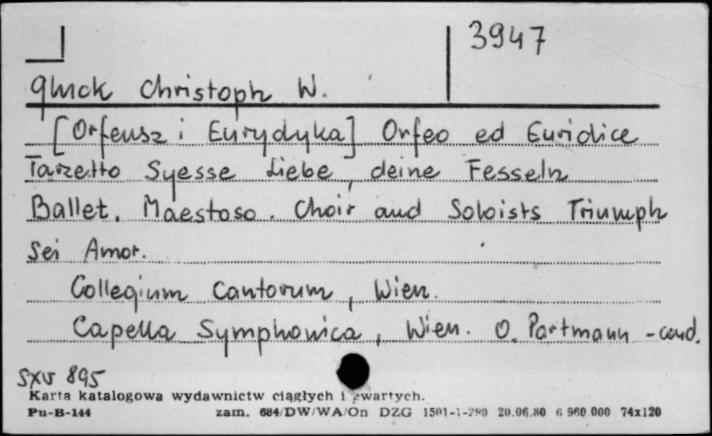 3947
Gluck Christoph W.
[Orfeusz i Eurydyka] Orfeo ed Euridice
Tarzetto Syesse Liebe, deine Fesseln
Ballet. Maestoso. Choir and Soloists Triumph
sei Amor.
Collegium Cantorum, Wien.
Capella Symphonica, Wien. O. Partmann - cond.
SXV 895
Karta katalogowa wydawnictw ciągłych i zwartych.
Pu-B-144 zam. 684/DW/WA/On DZG 1501-1-290 20.06.80 6 960 000 74x120